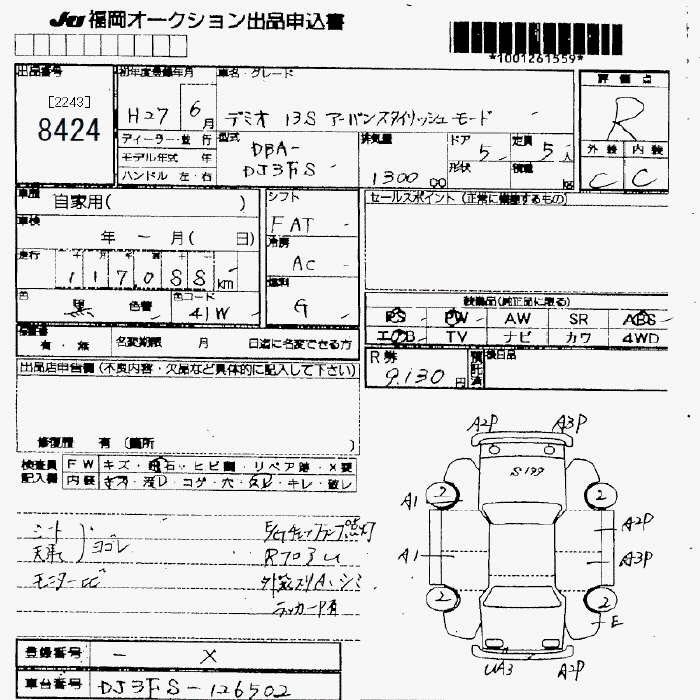 JU 福岡オークション出品申込書
*1001261559*
出品番号
[2243]
8424
初年度登録年月
H27 6月
車名・グレード
デミオ 13S アーバンスタイリッシュモード
評価点
R
外装 内装
C C
ディーラー・並行
モデル年式 年
ハンドル 左・右
型式
DBA-
DJ3FS
排気量
1300 cc
ドア 5
形状
定員 5人
積載 kg
車歴
自家用( )
車検
年 - 月( 日)
走行
117088 km
色 黒 色替
色コード 41W
シフト
FAT
冷房
AC
燃料
G
セールスポイント (正常に機能するもの)
装備品(純正品に限る)
PS PW AW SR ABS
エアB TV ナビ カワ 4WD
有・無
名変期限 月 日迄に名変できる方
R券
9,130円
預託済
後日品
出品店申告欄(不良内容・欠品など具体的に記入して下さい)
修復歴 有 (箇所 )
検査員
記入欄
FW キズ・飛石・ヒビ割・リペア跡・×要
内装 キズ・汚レ・コゲ・穴・スレ・キレ・破レ
シート
天張て
ヨゴレ
モニター
E/gチェックランプ点灯
外装スリA・シミ
ラッカー下有
A2P A3P
S199
A1
2 2
A2P
A1
A3P
2 2
E
UA3 A2P
登録番号 - X
車台番号 DJ3FS-126502